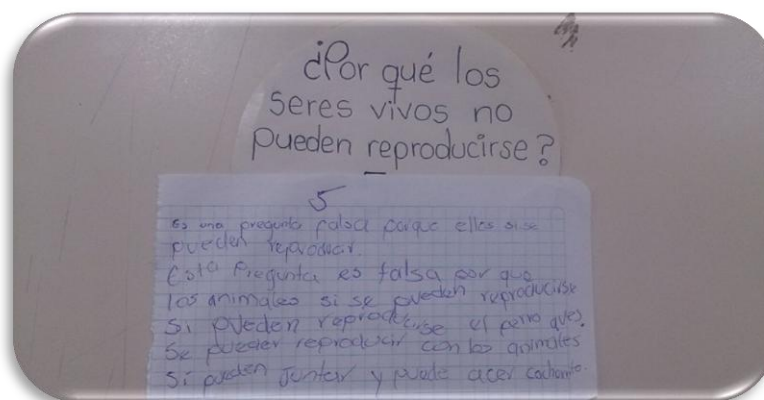 ¿Por qué los
seres vivos no
pueden reproducirse?
5
Es una pregunta falsa porque ellos si se
pueden reproducir.
Esta Pregunta es falsa por que
los animales si se pueden reproducirse
Si pueden reproducirse el perro
Se pueder reproducir con los animales
Si pueden Juntar y puede acer